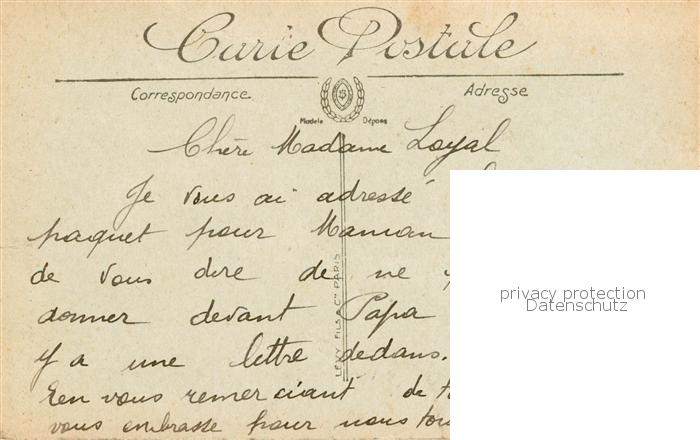 Carte Postale
Correspondance
Adresse
Modèle Déposé
Chère Madame Loyal
Je vous ai adressé
paquet pour Maman
de vous dire de ne
donner devant Papa
y a une lettre dedans.
En vous remerciant de
vous embrasse pour nous tou
LEVY FILS & Cie PARIS
privacy protection
Datenschutz